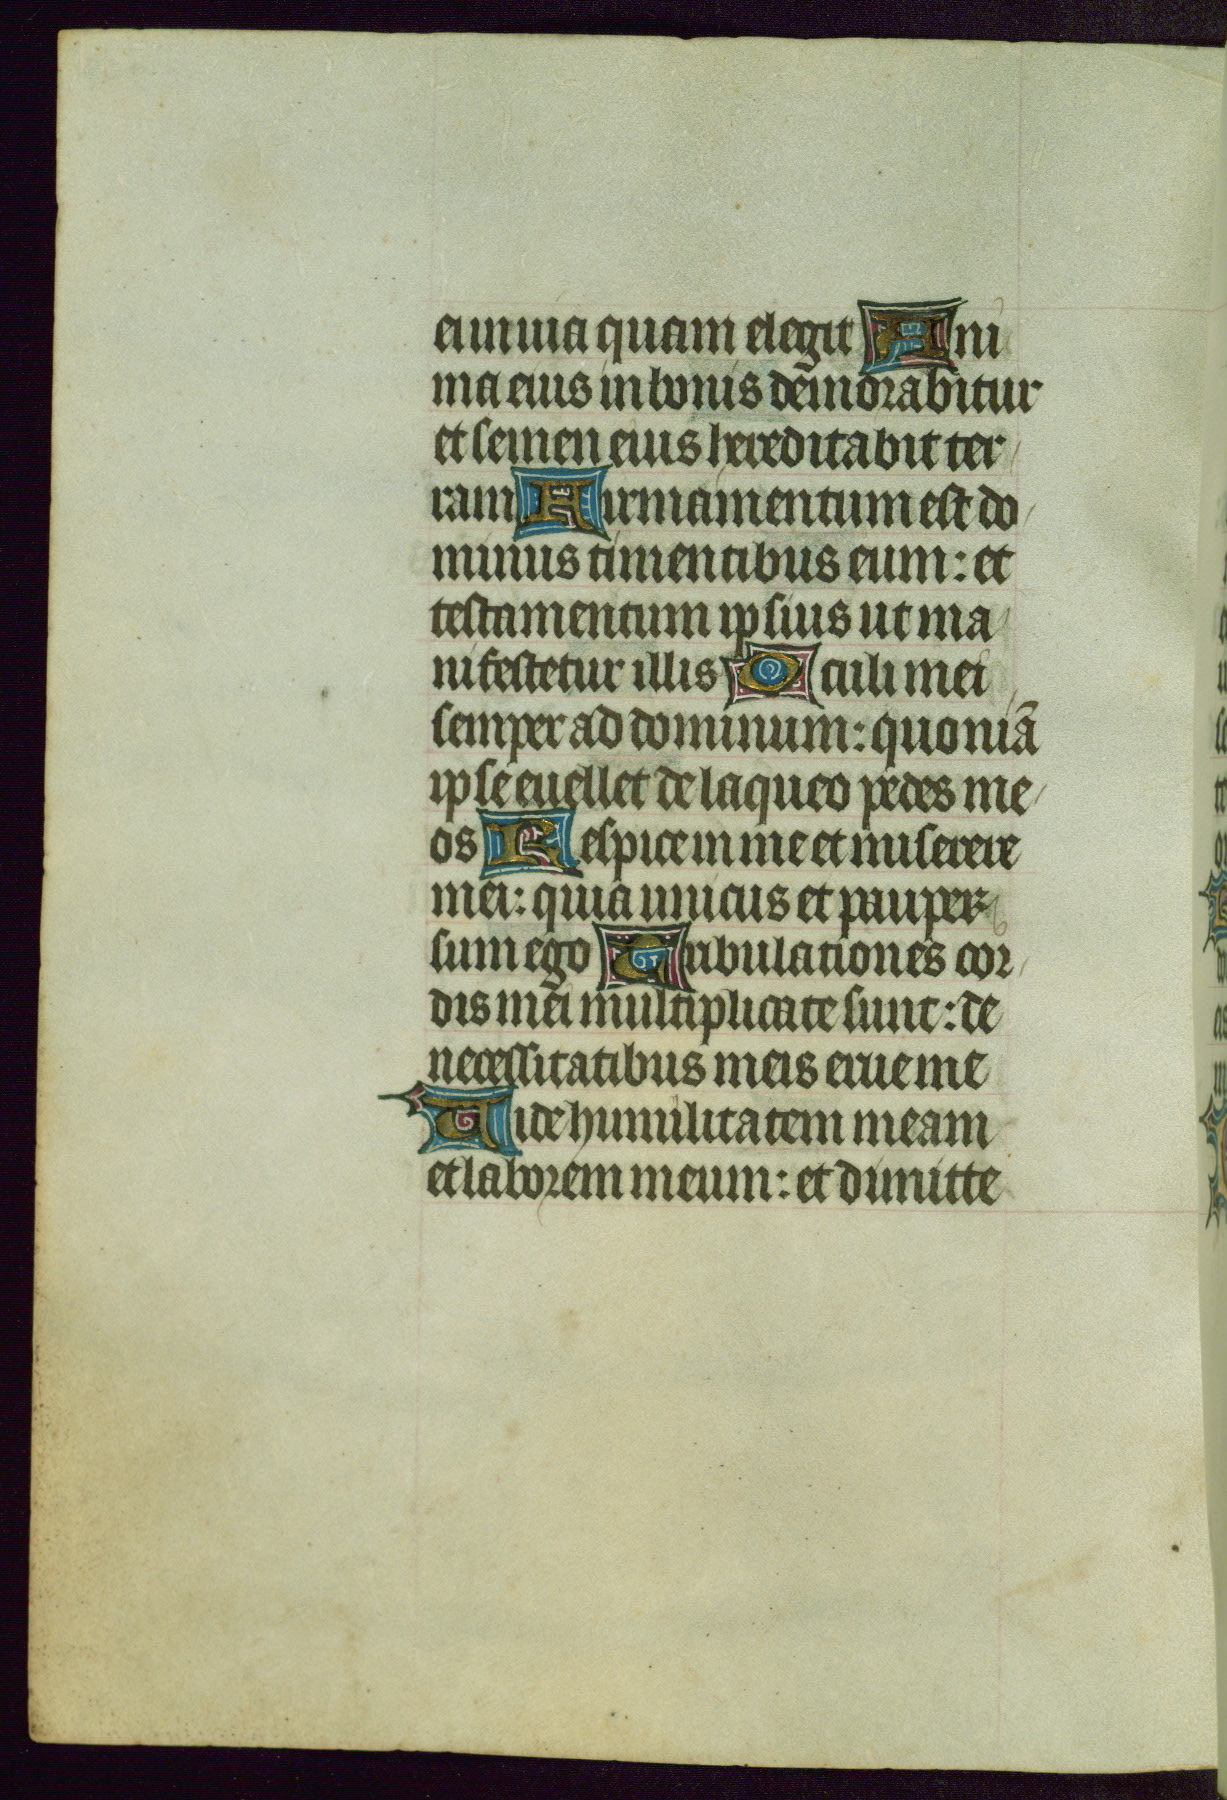 ei in uia quam elegit Ani
ma eius in bonis demorabitur
et semen eius hereditabit ter
ram Firmamentum est do
minus timentibus eum: et
testamentum ipsius ut ma
nifestetur illis Oculi mei
semper ad dominum: quoniā
ipse euellet de laqueo pedes me
os Respice in me et miserere
mei: quia unicus et pauper
sum ego Tribulationes cor
dis mei multiplicate sunt: de
necessitatibus meis erue me
Uide humilitatem meam
et laborem meum: et dimitte